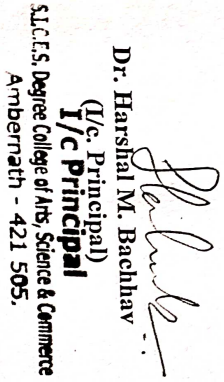 Dr. Harshal M. Bachhav
(I/c. Principal)
I/c Principal
S.I.C.E.S. Degree College of Arts, Science & Commerce
Ambernath - 421 505.